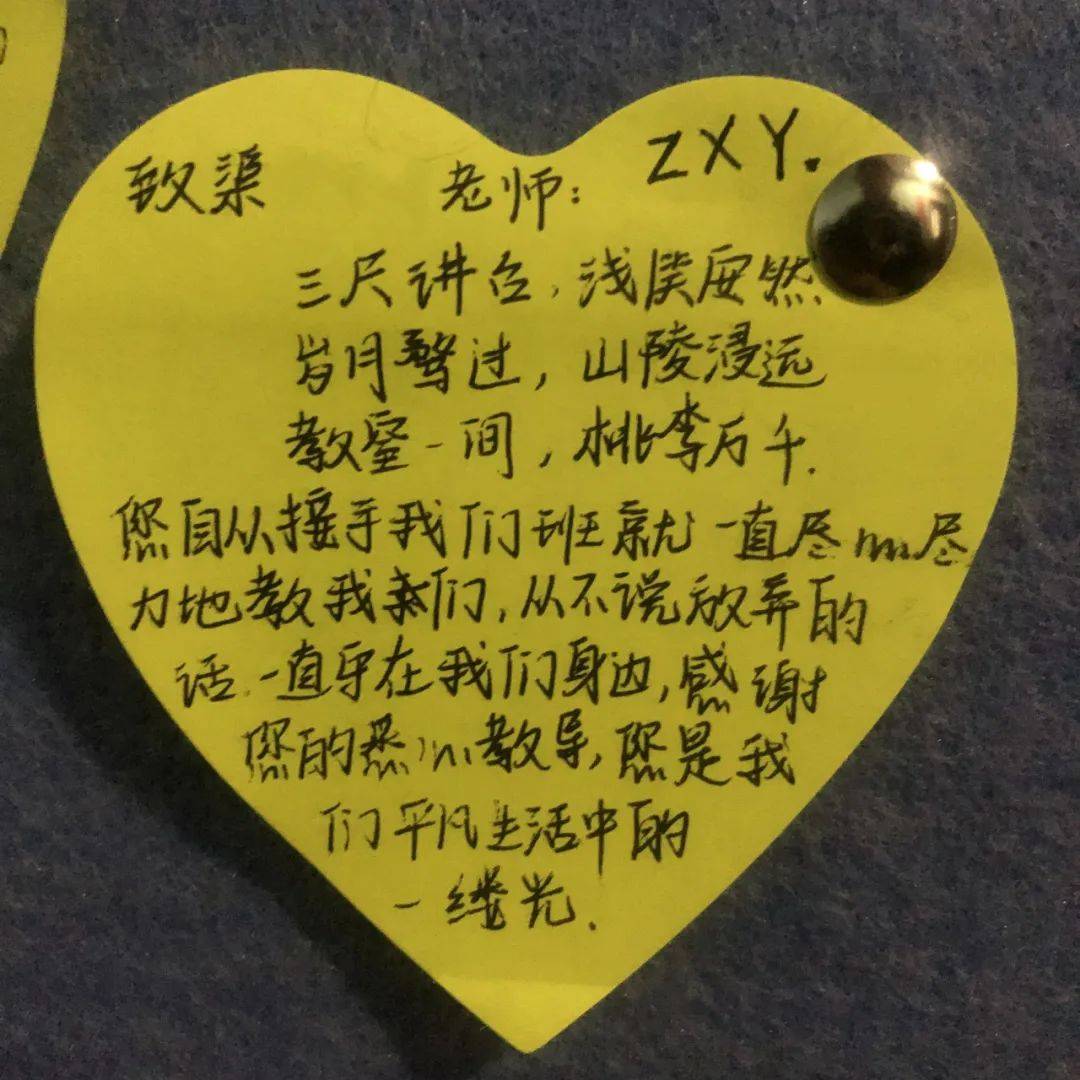 致渠 老师: ZXY.
三尺讲台,浅笑安然
岁月骛过,山陵浸远
教室一间,桃李万千.
您自从接手我们班就一直尽心尽
力地教我们,从不说放弃的
话.一直守在我们身边,感谢
您的悉心教导,您是我
们平凡生活中的
一缕光.